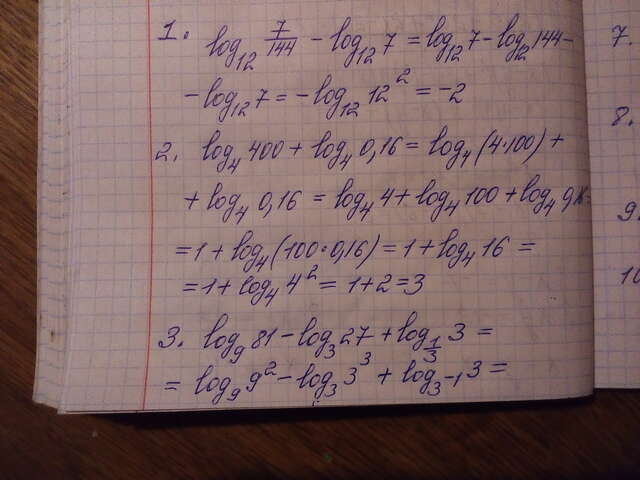 1. log₁₂ 7/144 - log₁₂ 7 = log₁₂ 7 - log₁₂ 144 -
- log₁₂ 7 = - log₁₂ 12² = -2
2. log₄ 400 + log₄ 0,16 = log₄ (4·100) +
+ log₄ 0,16 = log₄ 4 + log₄ 100 + log₄ 0,16 =
= 1 + log₄ (100·0,16) = 1 + log₄ 16 =
= 1 + log₄ 4² = 1 + 2 = 3
3. log₉ 81 - log₃ 27 + log_{1/3} 3 =
= log₉ 9² - log₃ 3³ + log_{3⁻¹} 3 =
7.
8.
9.
10